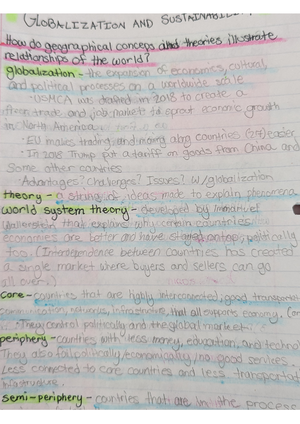 GLOBALIZATION AND SUSTAINABIL
How do geographical conceps and theories illustrate
relationships of the world?
globalization - the expansion of economics, cultural,
and political processes on a worldwide scale
· USMCA was drafted in 2018 to create a
free trade and job markets to sprout economic growth
in North America
· EU makes trading, and money along countries (27) easier
· In 2018 Trump put a tariff on goods from China and
Some other contries
· Advantages? Challenges? Issues? W/globalization
theory - a string of ideas made to explain phenomena
world system theory - developed by Immanuel
Wallerstein that explains why certain countries'
economies are better and have stronger politically
too. (Interdependence between countries has created
a single market where buyers and sellers can go
all over)
core - countries that are highly interconnected; good transportat
communication, networks, infrastructure, that all supports economy. (
· They control politically and the global market.
periphery - countries with less money, education, and techno
They also fail politically/economically, no good services.
Less connected to core countries and less transportat
infrastructure.
semi-periphery - countries that are in the process